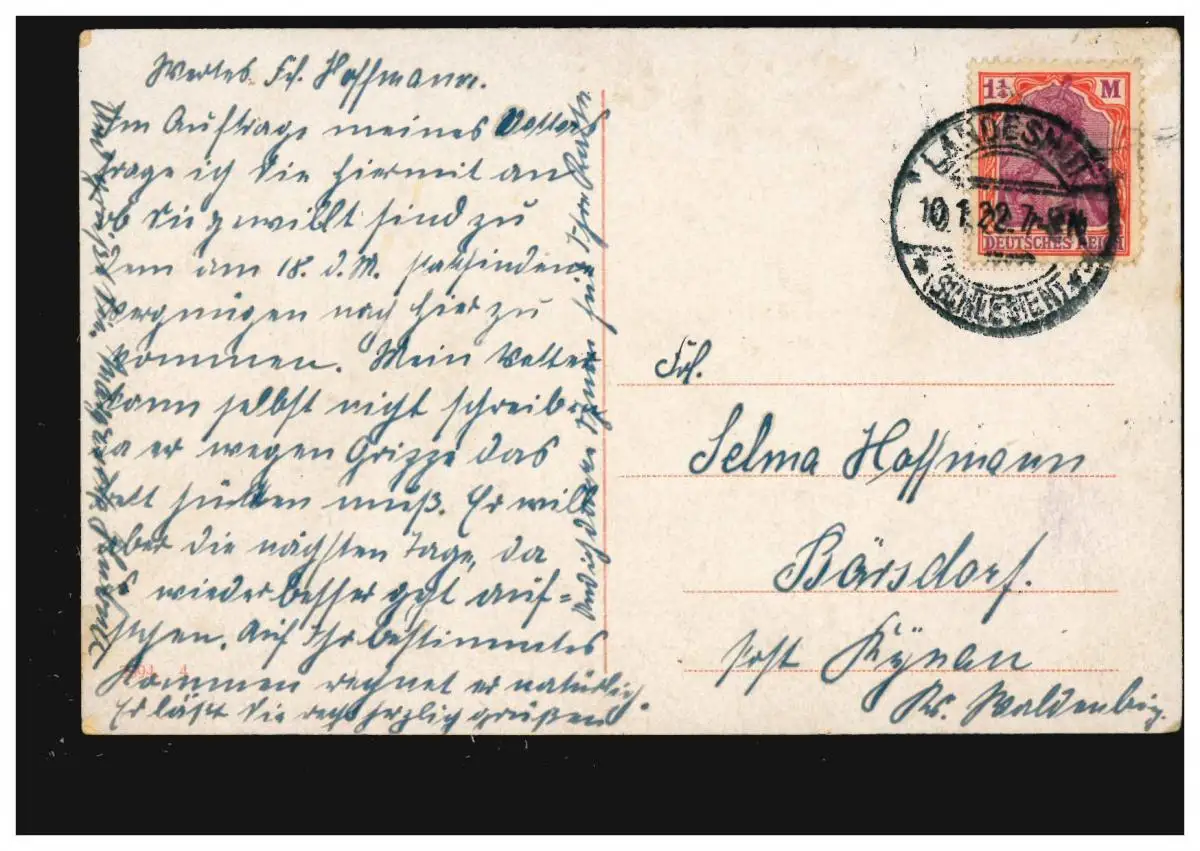 Wertes Frl. Hoffmann.
Im Auftrage meines Vetters
frage ich Sie hiermit an
ob Sie gewillt sind zu
dem am 18. d. M. stattfindenden
Vergnügen nach hier zu
kommen. Mein Vetter
kann selbst nicht schreiben
da er wegen Grippe das
Bett hüten muß. Er will
aber die nächsten Tage, da
es wieder besser geht auf=
stehen. Auf Ihr bestimmtes
Kommen rechnet er natürlich.
Er läßt Sie recht herzlich grüßen
Auch ich danke Ihnen für Ihre Karte
und grüße Sie.
1¼ M
DEUTSCHES REICH
LANDESHUT
10.1.22. 7-8N
(SCHLESIEN)
Frl.
Selma Hoffmann
Bärsdorf.
Post Kynau
Kr. Waldenbg.
4